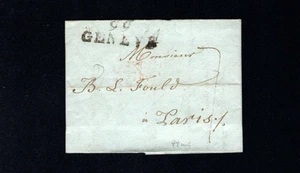 99
GENÈVE
Monsieur
B. L. Fould
à Paris ./.